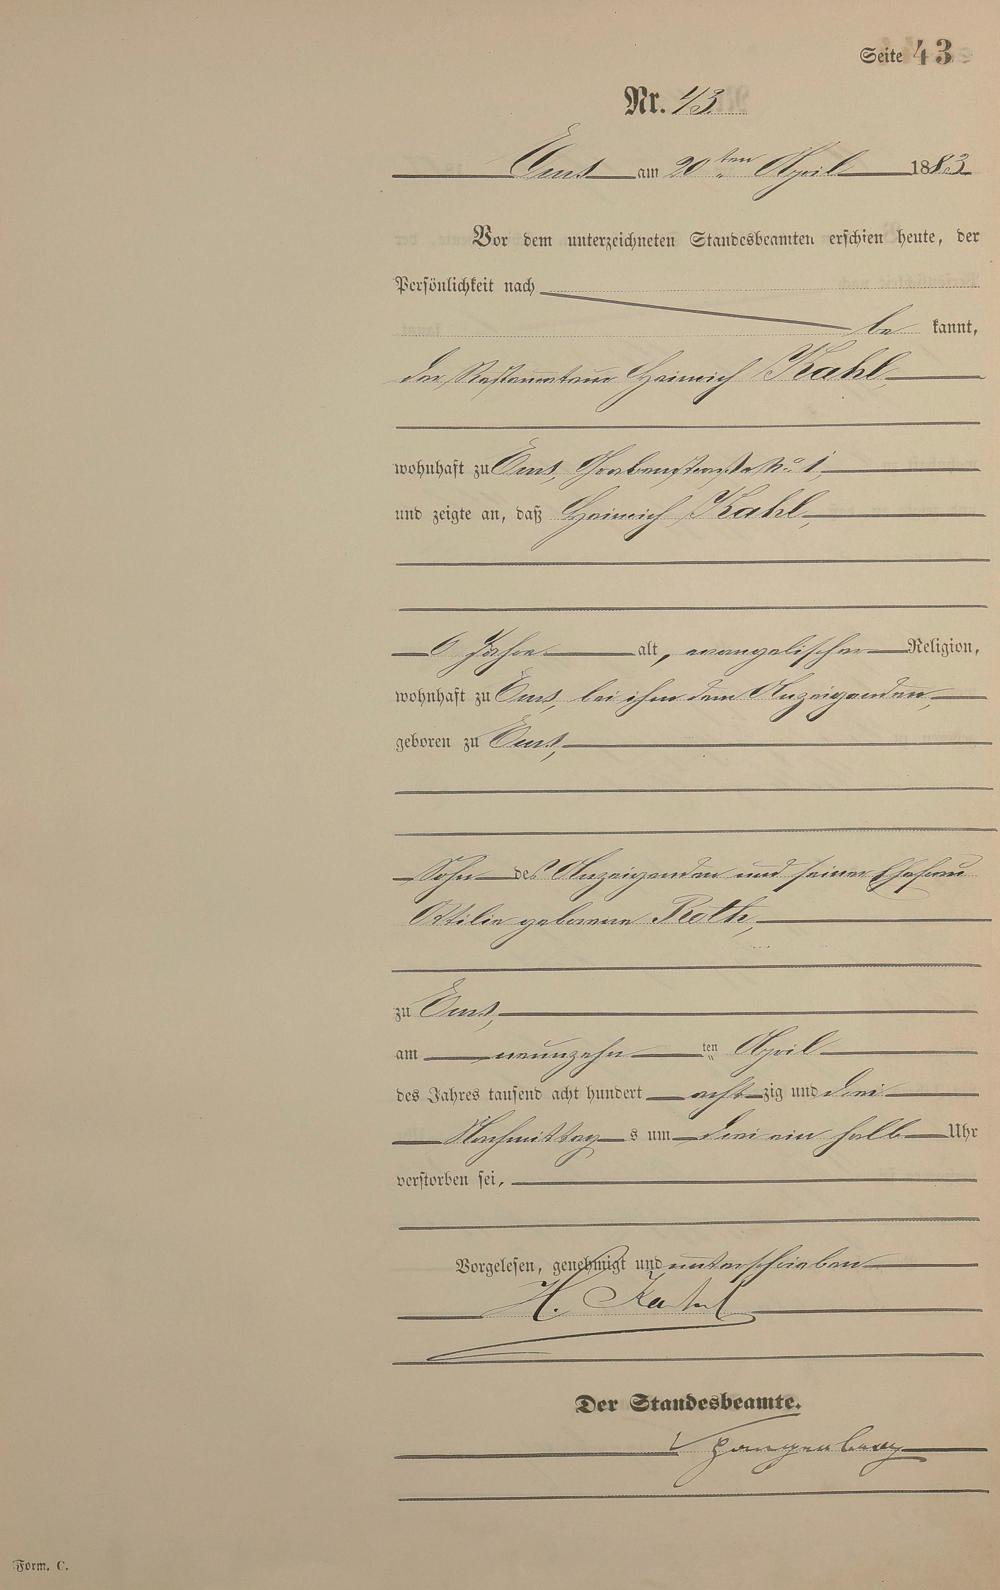 Seite 43
Nr. 43
Ems am 20ten April 1883
Vor dem unterzeichneten Standesbeamten erschien heute, der
Persönlichkeit nach
be kannt,
der Restaurateur Heinrich Kahl,
wohnhaft zu Ems, Grabenstraße No 1,
und zeigte an, daß Heinrich Kahl,
6 Jahre alt, evangelischer Religion,
wohnhaft zu Ems, bei ihm dem Anzeigenden,
geboren zu Ems,
Sohn des Anzeigenden und seiner Ehefrau
Ottilie geborene Roth,
zu Ems,
am neunzehn ten April
des Jahres tausend acht hundert acht zig und drei
Nachmittag s um drei ein halb Uhr
verstorben sei,
Vorgelesen, genehmigt und unterschrieben
H. Kahl
Der Standesbeamte.
Spangenberg
Form. C.